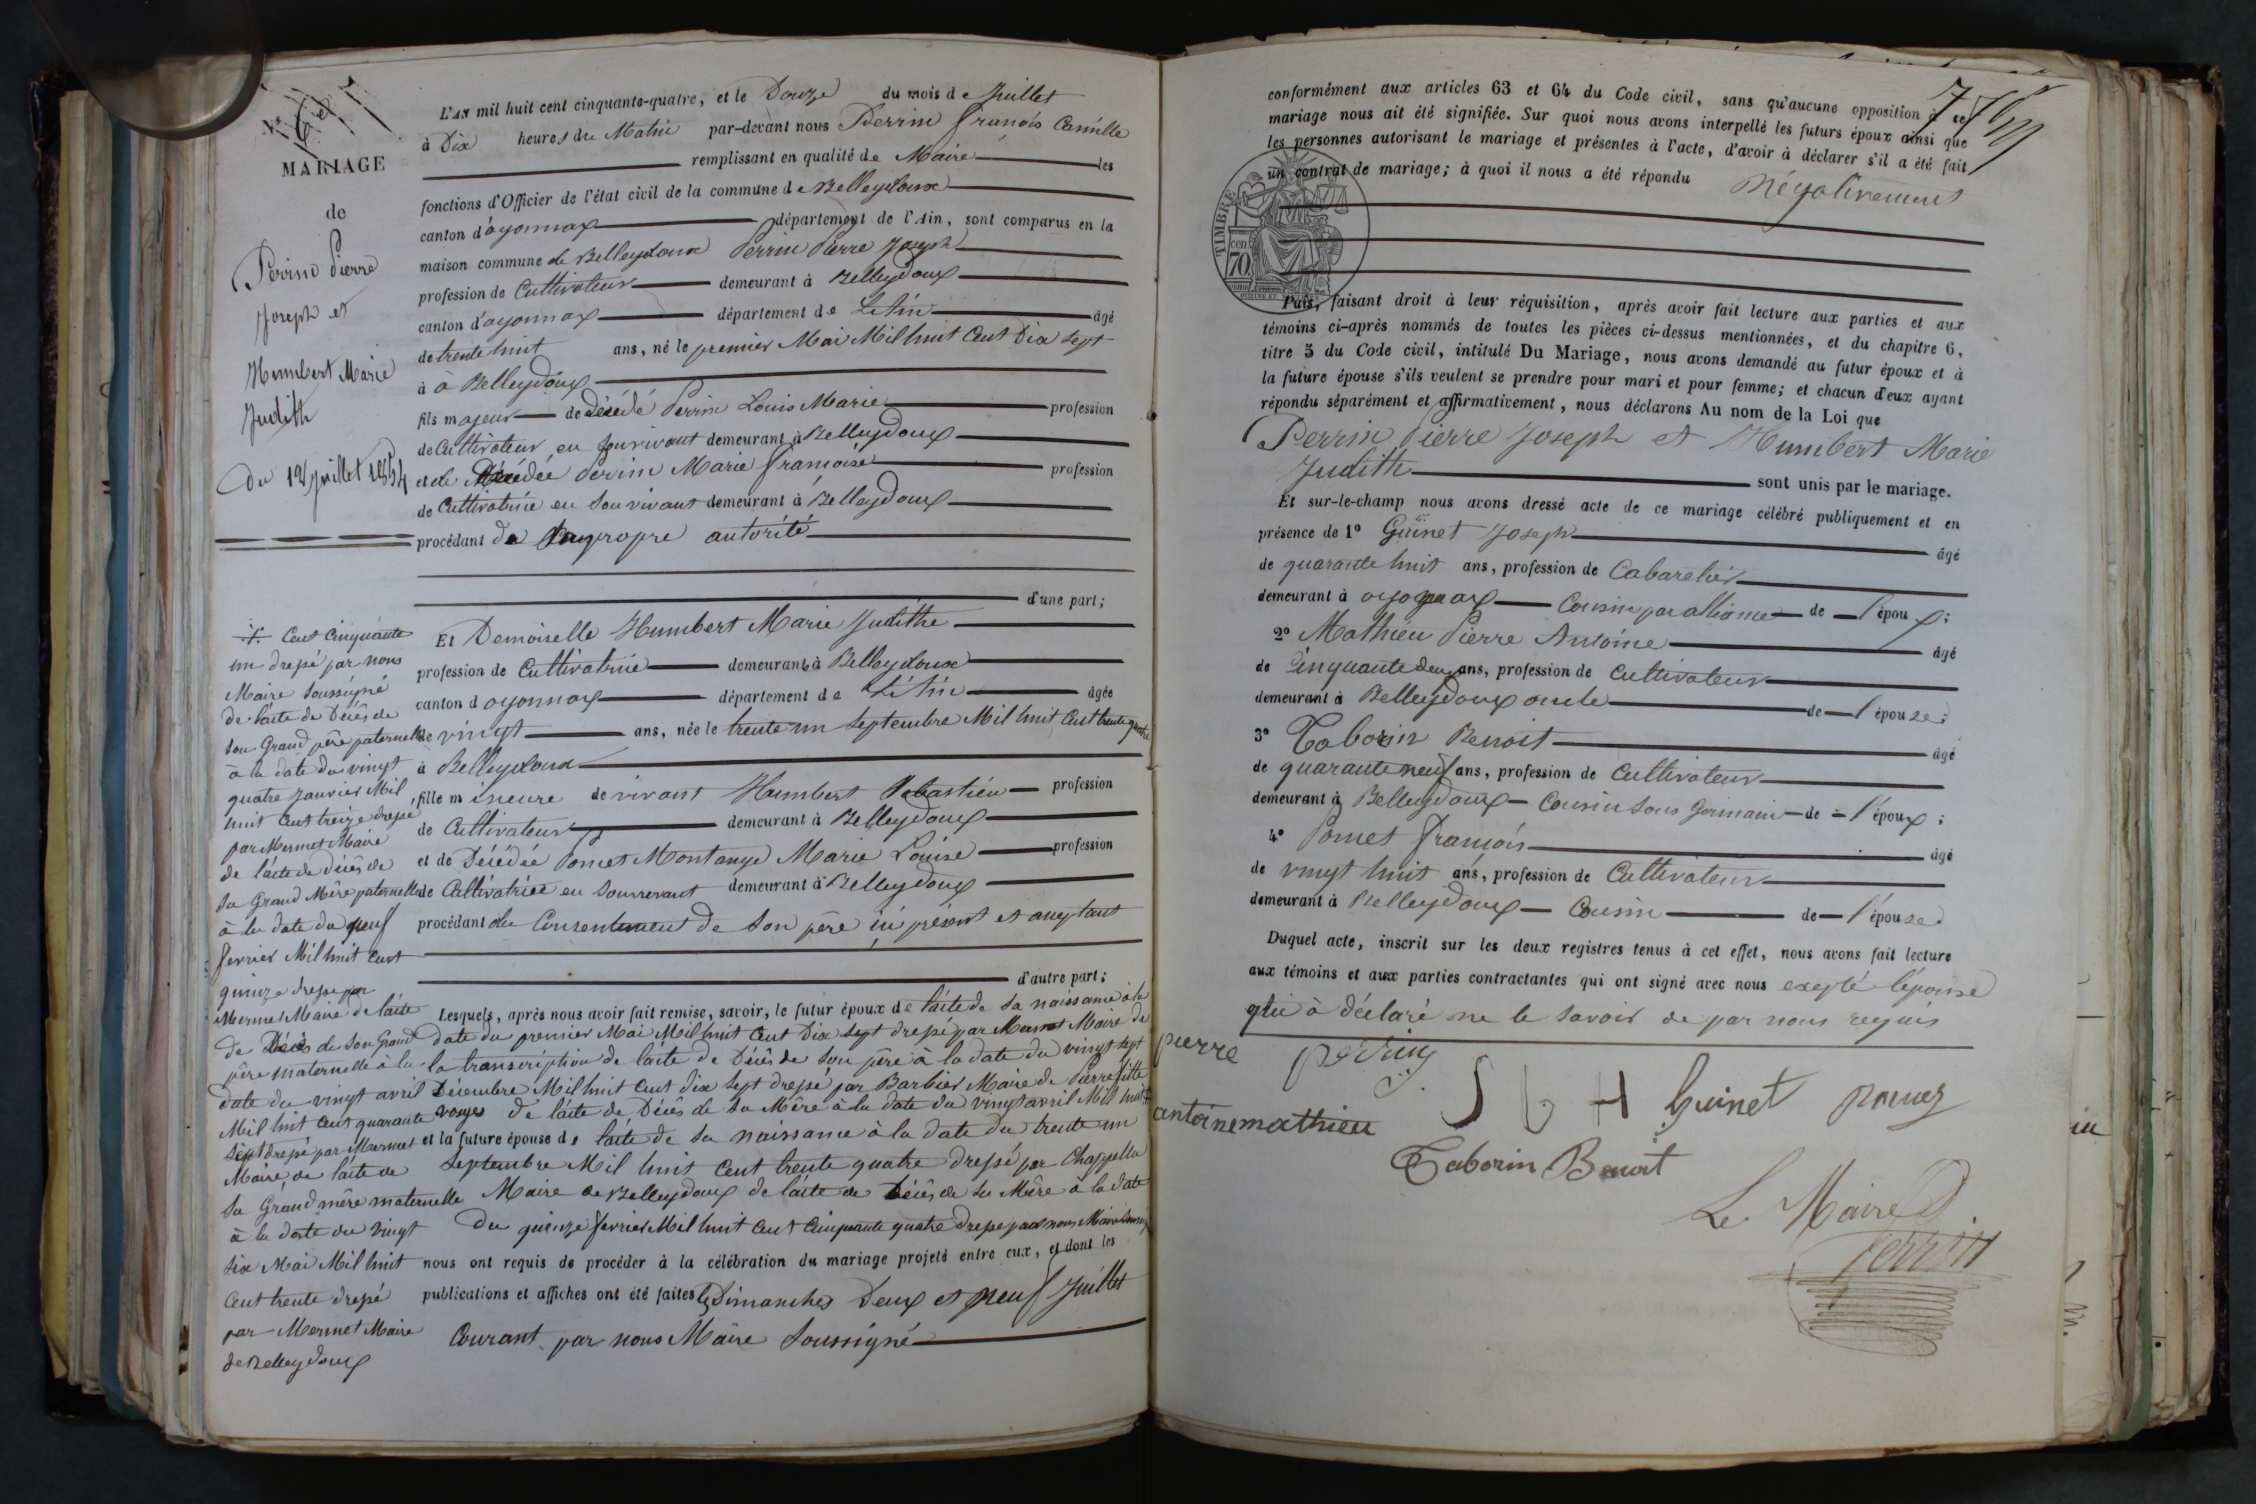 N° 6
MARIAGE
de
Perrin Pierre
Joseph et
Humbert Marie
Judith
Du 12 Juillet 1854
L'AN mil huit cent cinquante-quatre, et le Douze du mois de Juillet
à Dix heures du Matin par-devant nous Perrin François Camille
remplissant en qualité de Maire les
fonctions d'Officier de l'état civil de la commune de Belleydoux
canton d'oyonnax département de l'Ain, sont comparus en la
maison commune de Belleydoux Perrin Pierre Joseph
profession de Cultivateur demeurant à Belleydoux
canton d'oyonnax département de L'Ain âgé
de trente huit ans, né le premier Mai Mil huit Cent Dix Sept
à à Belleydoux
fils majeur de Décédé Perrin Louis Marie profession
de Cultivateur en Son vivant demeurant à Belleydoux
et de Décédée Perrin Marie Françoise profession
de Cultivatrice en Son vivant demeurant à Belleydoux
procédant de Sa propre autorité
d'une part;
Et Demoiselle Humbert Marie Judithe
profession de Cultivatrice demeurant à Belleydoux
canton d oyonnax département de L'Ain âgée
de vingt ans, née le trente un Septembre Mil huit Cent trente quatre
à Belleydoux
fille mineure de vivant Humbert Sébastien profession
de Cultivateur demeurant à Belleydoux
et de Décédée Pomet Montange Marie Louise profession
de Cultivatrice en Son vivant demeurant à Belleydoux
procédant du Consentement de Son père ici présent et aceptant
d'autre part;
Lesquels, après nous avoir fait remise, savoir, le futur époux de l'acte de Sa naissance à la
date du premier Mai Mil huit Cent Dix Sept dressé par Mermet Maire de
la transcription de l'acte de Décès de Son père à la date du vingt Sept
Décembre Mil huit Cent dix Sept dressé par Barbier Maire de Pierrefitte
Vosges de l'acte de Décès de Sa Mère à la date du vingt avril Mil huit
et la future épouse de l'acte de Sa naissance à la date du trente un
Septembre Mil huit Cent trente quatre dressé par Chappellu
Maire de Belleydoux de l'acte de Décès de Sa Mère à la date
du quinze fevrier Mil huit Cent Cinquante quatre dressé par nous Maire
nous ont requis de procéder à la célébration du mariage projeté entre eux, et dont les
publications et affiches ont été faites les Dimanches Deux et neuf Juillet
Courant par nous Maire Soussigné
Cent Cinquante
un dressé par nous
Maire Soussigné
de l'acte de Décès de
Son Grand père paternelle
à la date du vingt
quatre Janvier Mil
huit Cent treize dressé
par Mermet Maire
de l'acte de Décès de
Sa Grand Mère paternelle
à la date du neuf
fevrier Mil huit Cent
quinze dressé par
Mermet Maire de l'acte
de Décès de Son Grand
père maternelle à la
date du vingt avril
Mil huit Cent quarante
Sept dressé par Mermet
Maire de l'acte de
Sa Grand mère maternelle
à la date du vingt
Six Mai Mil huit
Cent trente dressé
par Mermet Maire
de Belleydoux
conformément aux articles 63 et 64 du Code civil, sans qu'aucune opposition à ce
mariage nous ait été signifiée. Sur quoi nous avons interpellé les futurs époux ainsi que
les personnes autorisant le mariage et présentes à l'acte, d'avoir à déclarer s'il a été fait
un contrat de mariage; à quoi il nous a été répondu Négativement
TIMBRE
cen
70
Puis, faisant droit à leur réquisition, après avoir fait lecture aux parties et aux
témoins ci-après nommés de toutes les pièces ci-dessus mentionnées, et du chapitre 6,
titre 5 du Code civil, intitulé Du Mariage, nous avons demandé au futur époux et à
la future épouse s'ils veulent se prendre pour mari et pour femme; et chacun d'eux ayant
répondu séparément et affirmativement, nous déclarons Au nom de la Loi que
Perrin Pierre Joseph et Humbert Marie
Judith sont unis par le mariage.
Et sur-le-champ nous avons dressé acte de ce mariage célébré publiquement et en
présence de 1° Guinet Joseph âgé
de quarante huit ans, profession de Cabaretier
demeurant à oyonnax Cousin par alliance de l'époux;
2° Mathieu Pierre Antoine âgé
de Cinquante deux ans, profession de Cultivateur
demeurant à Belleydoux oncle de l'épouse;
3° Taborin Benoit âgé
de quarante neuf ans, profession de Cultivateur
demeurant à Belleydoux Cousin Sous Germain de l'époux;
4° Pomet François âgé
de vingt huit ans, profession de Cultivateur
demeurant à Belleydoux Cousin de l'épouse.
Duquel acte, inscrit sur les deux registres tenus à cet effet, nous avons fait lecture
aux témoins et aux parties contractantes qui ont signé avec nous exepté l'épouse
qui à déclaré ne le Savoir de par nous requis
pierre perrin
S b H Guinet
antoine mathieu
Taborin Benoit
Le Maire
Perrin